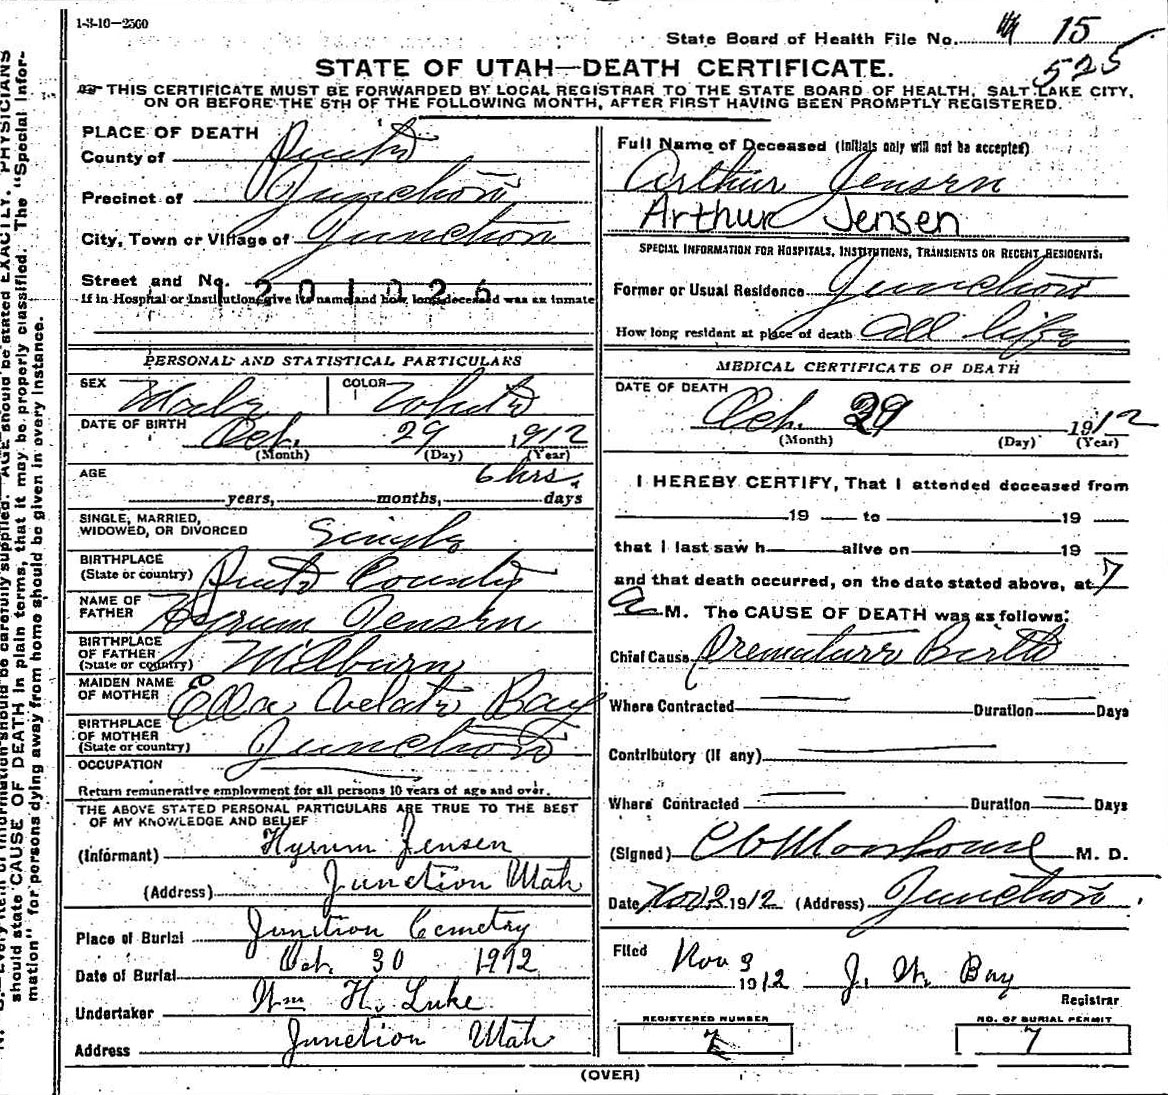 1-3-10-2500
State Board of Health File No. 15
525
STATE OF UTAH—DEATH CERTIFICATE.
THIS CERTIFICATE MUST BE FORWARDED BY LOCAL REGISTRAR TO THE STATE BOARD OF HEALTH, SALT LAKE CITY,
ON OR BEFORE THE 5TH OF THE FOLLOWING MONTH, AFTER FIRST HAVING BEEN PROMPTLY REGISTERED.
PLACE OF DEATH
County of Piute
Precinct of Junction
City, Town or Village of Junction
Street and No.
1201026
If in Hospital or Institution, give its name and how long deceased was an inmate
PERSONAL AND STATISTICAL PARTICULARS
SEX Male COLOR White
DATE OF BIRTH Oct. 29 1912
(Month) (Day) (Year)
AGE 6 hrs.
years, months, days
SINGLE, MARRIED,
WIDOWED, OR DIVORCED Single
BIRTHPLACE
(State or country) Piute County
NAME OF
FATHER Hyrum Jensen
BIRTHPLACE
OF FATHER
(State or country) Milburn
MAIDEN NAME
OF MOTHER Ella Bay
BIRTHPLACE
OF MOTHER
(State or country) Junction
OCCUPATION
Return remunerative employment for all persons 10 years of age and over.
THE ABOVE STATED PERSONAL PARTICULARS ARE TRUE TO THE BEST
OF MY KNOWLEDGE AND BELIEF
(Informant) Hyrum Jensen
(Address) Junction Utah
Place of Burial Junction Cemetry
Date of Burial Oct. 30 1912
Undertaker Wm H. Luke
Address Junction Utah
Full Name of Deceased (Initials only will not be accepted)
Arthur Jensen
Arthur Jensen
SPECIAL INFORMATION FOR HOSPITALS, INSTITUTIONS, TRANSIENTS OR RECENT RESIDENTS.
Former or Usual Residence Junction
How long resident at place of death all life
MEDICAL CERTIFICATE OF DEATH
DATE OF DEATH
Oct. 29 1912
(Month) (Day) (Year)
I HEREBY CERTIFY, That I attended deceased from
19 to 19
that I last saw h alive on 19
and that death occurred, on the date stated above, at 7
a M. The CAUSE OF DEATH was as follows:
Chief Cause Premature Birth
Where Contracted Duration Days
Contributory (if any)
Where Contracted Duration Days
(Signed) M. D.
Date Nov 2 1912 (Address) Junction
Filed Nov 3
1912 J. W. Bay
Registrar
REGISTERED NUMBER
7
NO. OF BURIAL PERMIT
7
(OVER)
should state CAUSE OF DEATH in plain terms, that it may be properly classified. The "Special Infor-
mation" for persons dying away from home should be given in every instance.